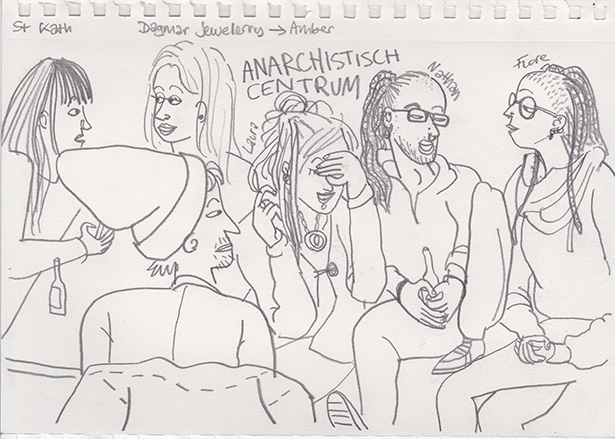 St Kath
Dagmar Jewelerry → Amber
ANARCHISTISCH
CENTRUM
Nathan
Fiore
Laura